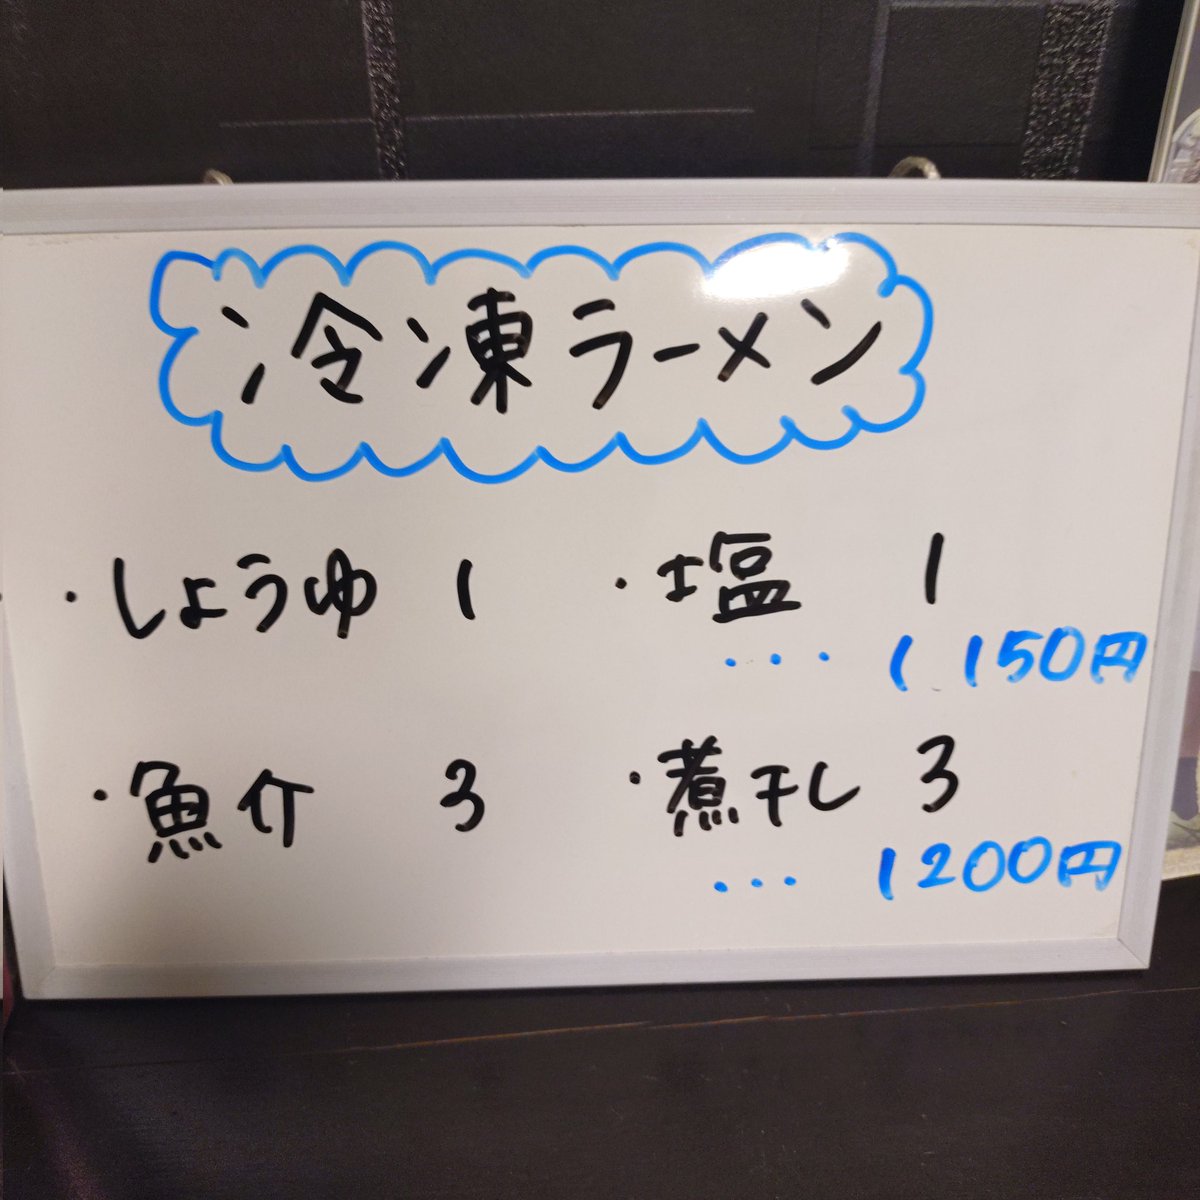 冷凍ラーメン
・しょうゆ 1 ・塩 1
... 1150円
・魚介 3 ・煮干し 3
... 1200円